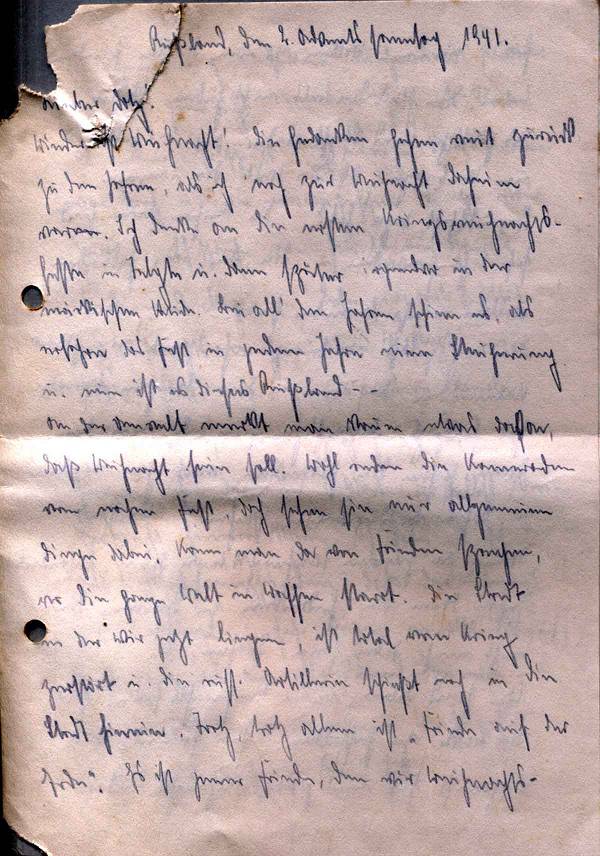 Rußland, den 2. Adventssonntag 1941.
Lieber Dolf!
Wieder ist Weihnacht! Die Gedanken gehen weit zurück
zu den Jahren, als ich noch zur Weihnacht daheim
war. Ich denke an die ersten Kriegsweihnachts-
feste in u. dann später irgendwo in der
märkischen Heide. Bei all' den Jahren schien es, als
erfahre das Fest in jedem Jahre eine Steigerung
u. nun ist es dieses Rußland - -
An der Umwelt merkt man kaum etwas davon,
daß Weihnacht sein soll. Wohl reden die Kameraden
vom nahen Fest, doch sehen sie nur allgemeine
Dinge dabei. Kann man da von Frieden sprechen,
wo die ganze Welt in Waffen starrt. Die Stadt
in der wir jetzt liegen, ist total vom Krieg
zerstört u. die russ. Artillerie schießt noch in die
Stadt hinein. Trotz, trotz allem ist „Friede auf der
Erde“. Es ist jener Friede, den wir Weihnachts-